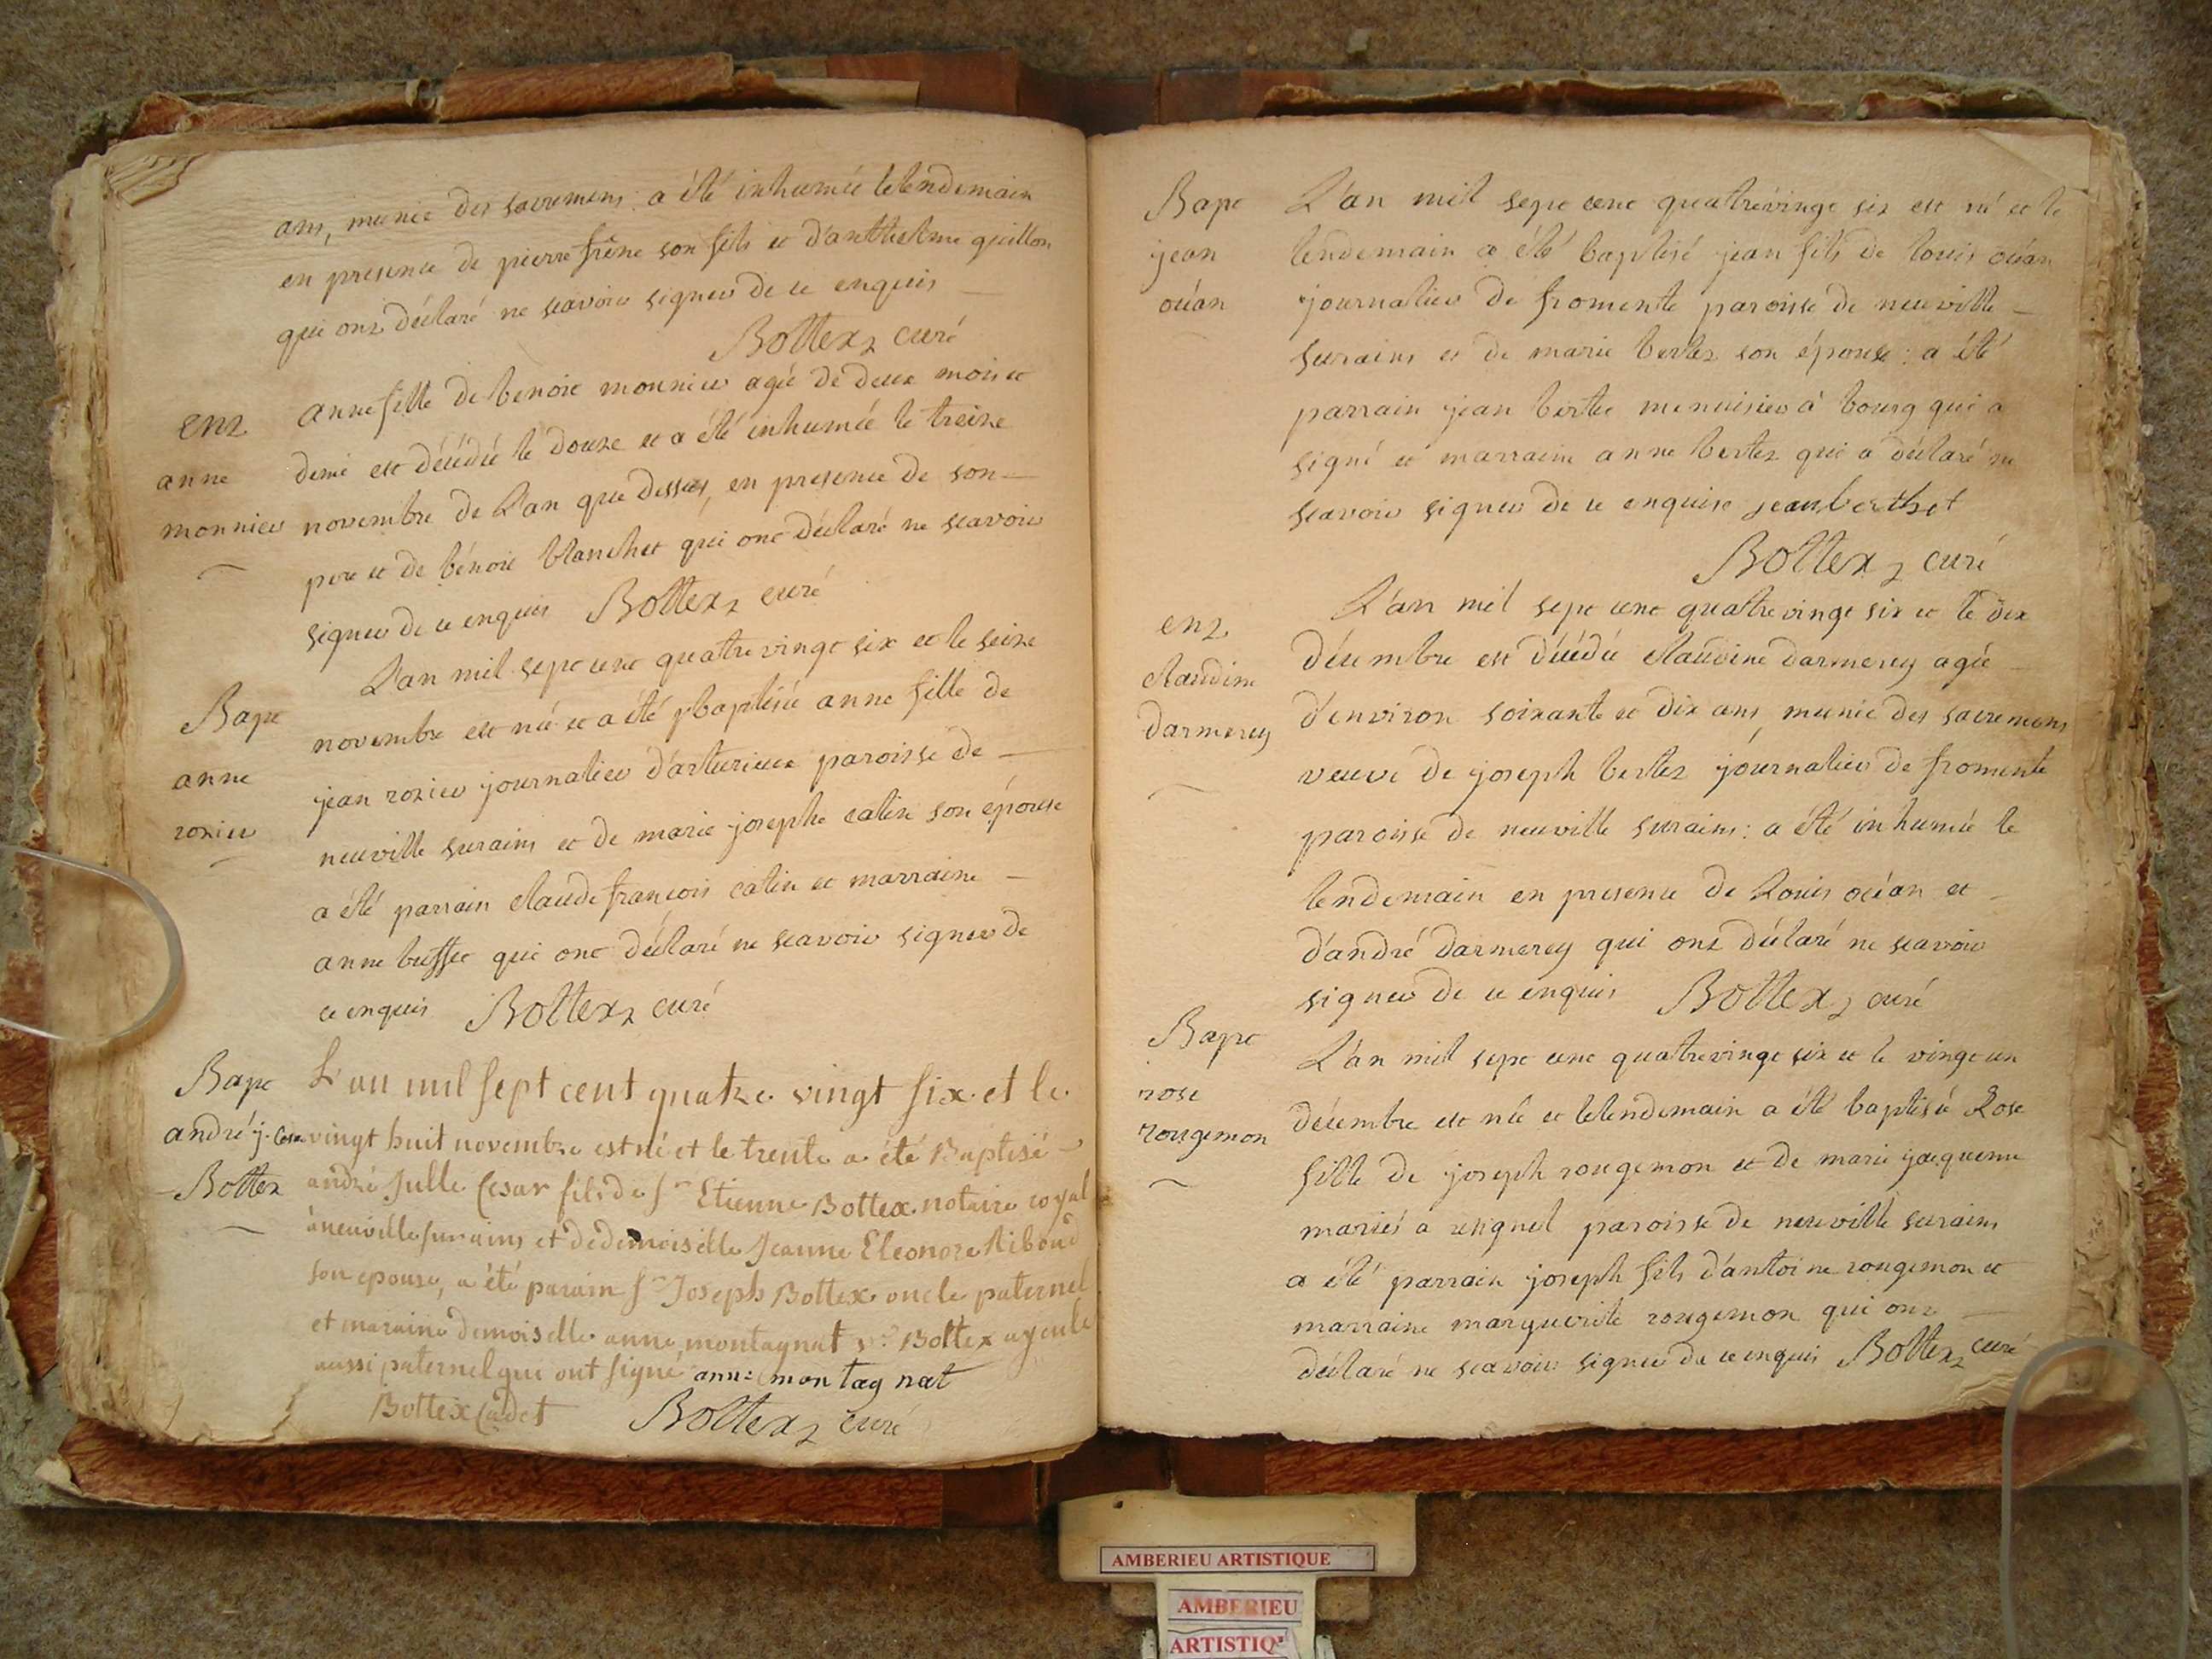 ans, munie des sacremens : a été inhumée le lendemain
en presence de pierre frêne son fils et d'anthelme guillon
qui ont déclaré ne scavoir signer de ce enquis
Bottex, curé
ent
anne
monnier
anne fille de benoit monnier agée de deux mois et
demi est décédée le douze et a été inhumée le treize
novembre de L'an que dessus, en presence de son
pere et de bénoit blanchet qui ont déclaré ne scavoir
signer de ce enquis Bottex, curé
Bapt
anne
rozier
L'an mil sept cent quatre vingt six et le seize
novembre est née et a été baptisée anne fille de
jean rozier journalier d'arturieux paroisse de
neuville surains et de marie josephe catin son épouse
a été parrain claude françois catin et marraine
anne buffet qui ont déclaré ne scavoir signer de
ce enquis Bottex, curé
Bapt
andré j. Cesar
Bottex
L'an mil sept cent quatre vingt six et le
vingt huit novembre est né et le trente a été Baptisé
andré Julle Cesar fils de Sr Etienne Bottex notaire royal
à neuville surains et de demoiselle Jeanne Eleonore Riboud
son epouse, a été parain Sr Joseph Bottex oncle paternel
et maraine demoiselle anne montagnat ve Bottex ayeule
aussi paternel qui ont signé anne montagnat
Bottex Cadet Bottex, curé
Bapt
jean
océan
L'an mil sept cent quatrevingt six est né et le
lendemain a été baptisé jean fils de louis océan
journalier de fromente paroisse de neuville
surains et de marie bertet son épouse : a été
parrain jean bertet menuisier à bourg qui a
signé et marraine anne bertet qui a déclaré ne
scavoir signer de ce enquise jean berthet
Bottex, curé
ent
claudine
darmerey
L'an mil sept cent quatrevingt six et le dix
décembre est décédée claudine darmerey agée
d'environ soixante et dix ans, munie des sacremens
veuve de joseph bertet journalier de fromente
paroisse de neuville surains : a été inhumée le
lendemain en presence de Louis océan et
d'andré darmerey qui ont déclaré ne scavoir
signer de ce enquis Bottex, curé
Bapt
rose
rougemon
L'an mil sept cent quatrevingt six et le vingt un
décembre est née et le lendemain a été baptisée Rose
fille de joseph rougemon et de marie jacqueme
mariés a paroisse de neuville surains
a été parrain joseph fils d'antoine rougemon et
marraine marguerite rougemon qui ont
déclaré ne scavoir signer de ce enquis Bottex, curé
AMBERIEU ARTISTIQUE
AMBERIEU
ARTISTIQ